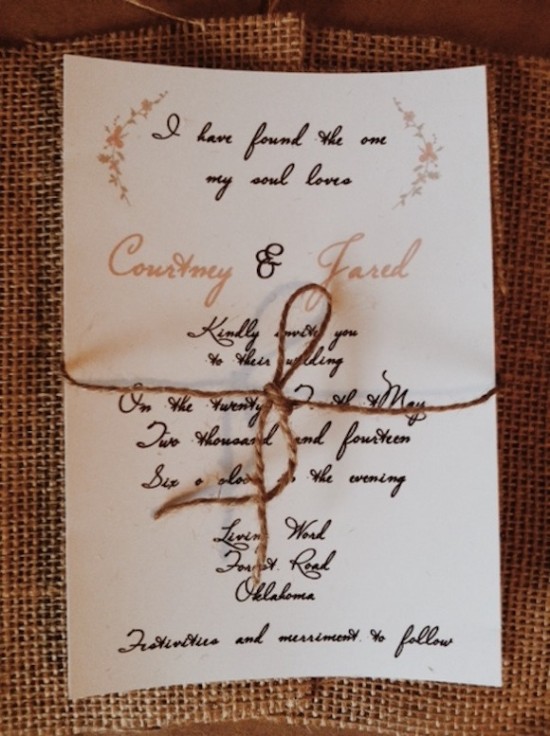 I have found the one
my soul loves
Courtney & Jared
Kindly invite you
to their wedding
On the twenty May
Two thousand and fourteen
Six o cloc the evening
Living Word
Forest Road
Oklahoma
Festivities and merriment to follow